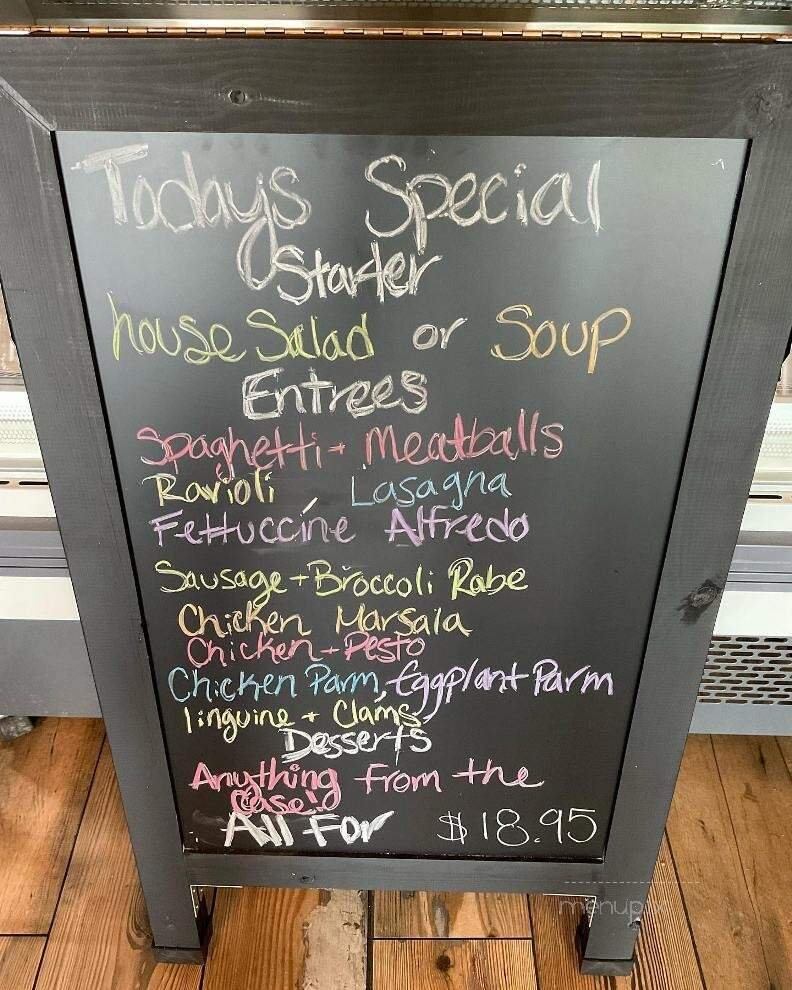 Todays Special
Starter
house Salad or Soup
Entrees
Spaghetti + Meatballs
Ravioli, Lasagna
Fettuccine Alfredo
Sausage + Broccoli Rabe
Chicken Marsala
Chicken + Pesto
Chicken Parm, Eggplant Parm
linguine + Clams
Desserts
Anything from the
Case!
All For $18.95
menupix